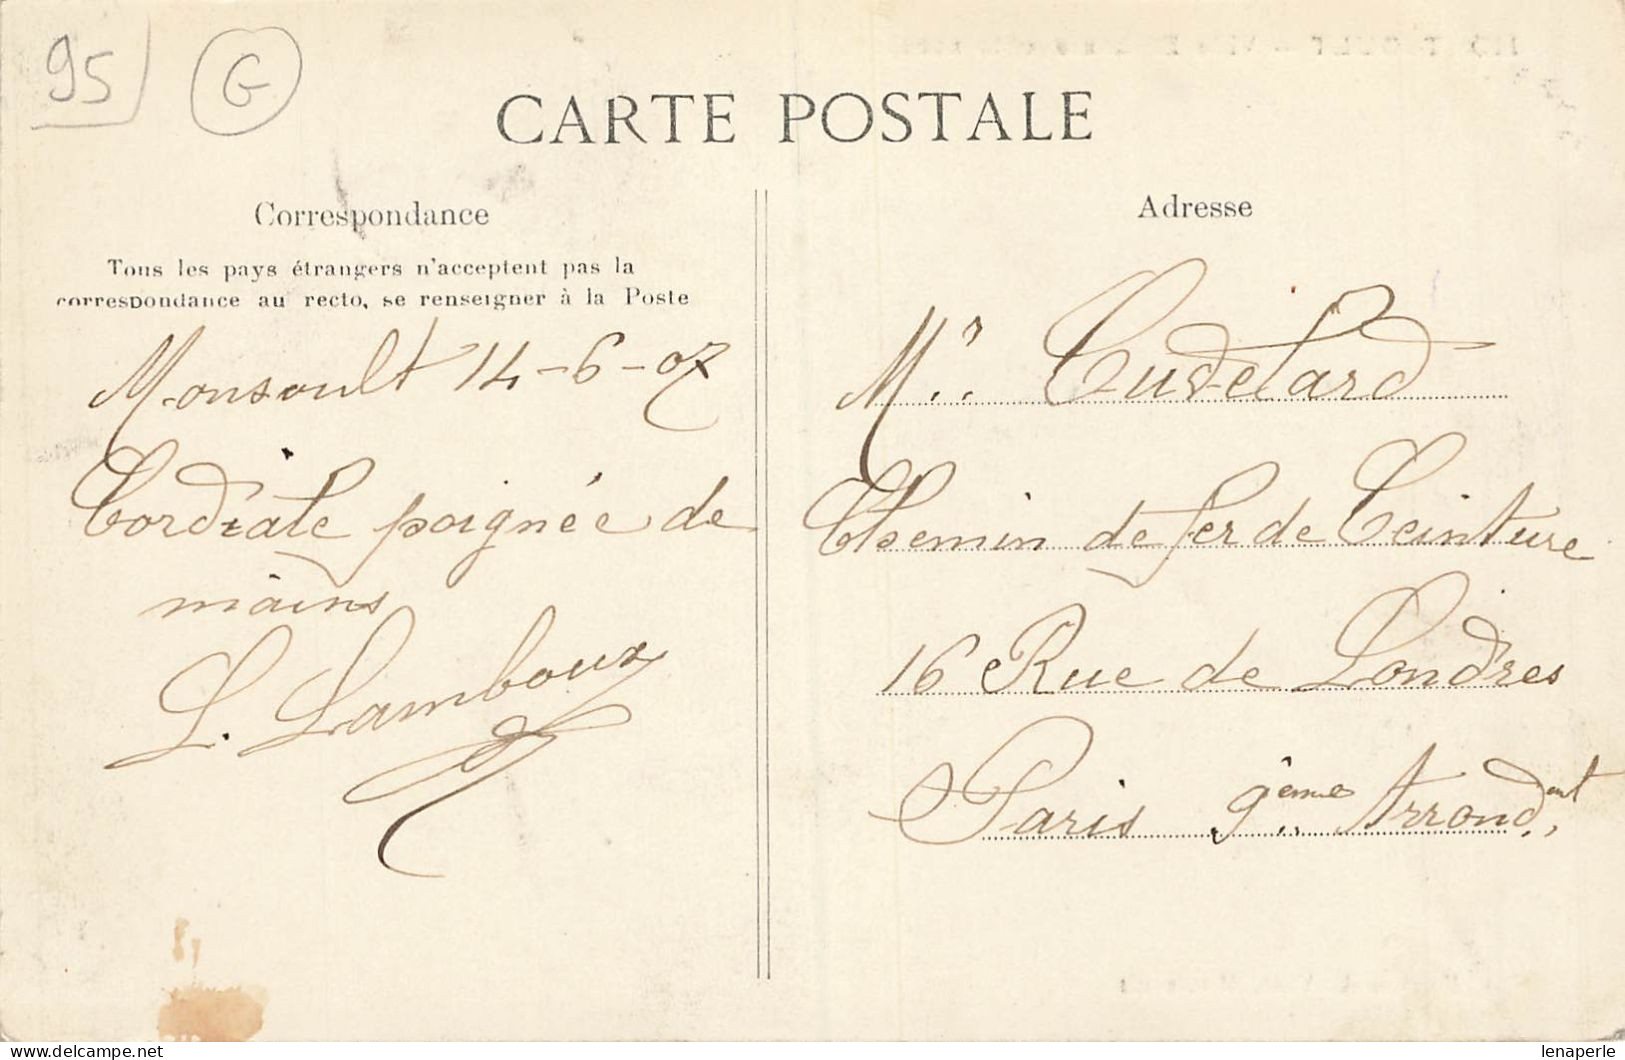 95 G
CARTE POSTALE
Correspondance
Tous les pays étrangers n'acceptent pas la
correspondance au recto, se renseigner à la Poste
Monsoult 14-6-07
Cordiale poignée de
mains
L. Lamboux
Adresse
Mr Cudelard
Chemin de fer de Ceinture
16 Rue de Londres
Paris 9ème Arrondt
lenaperle